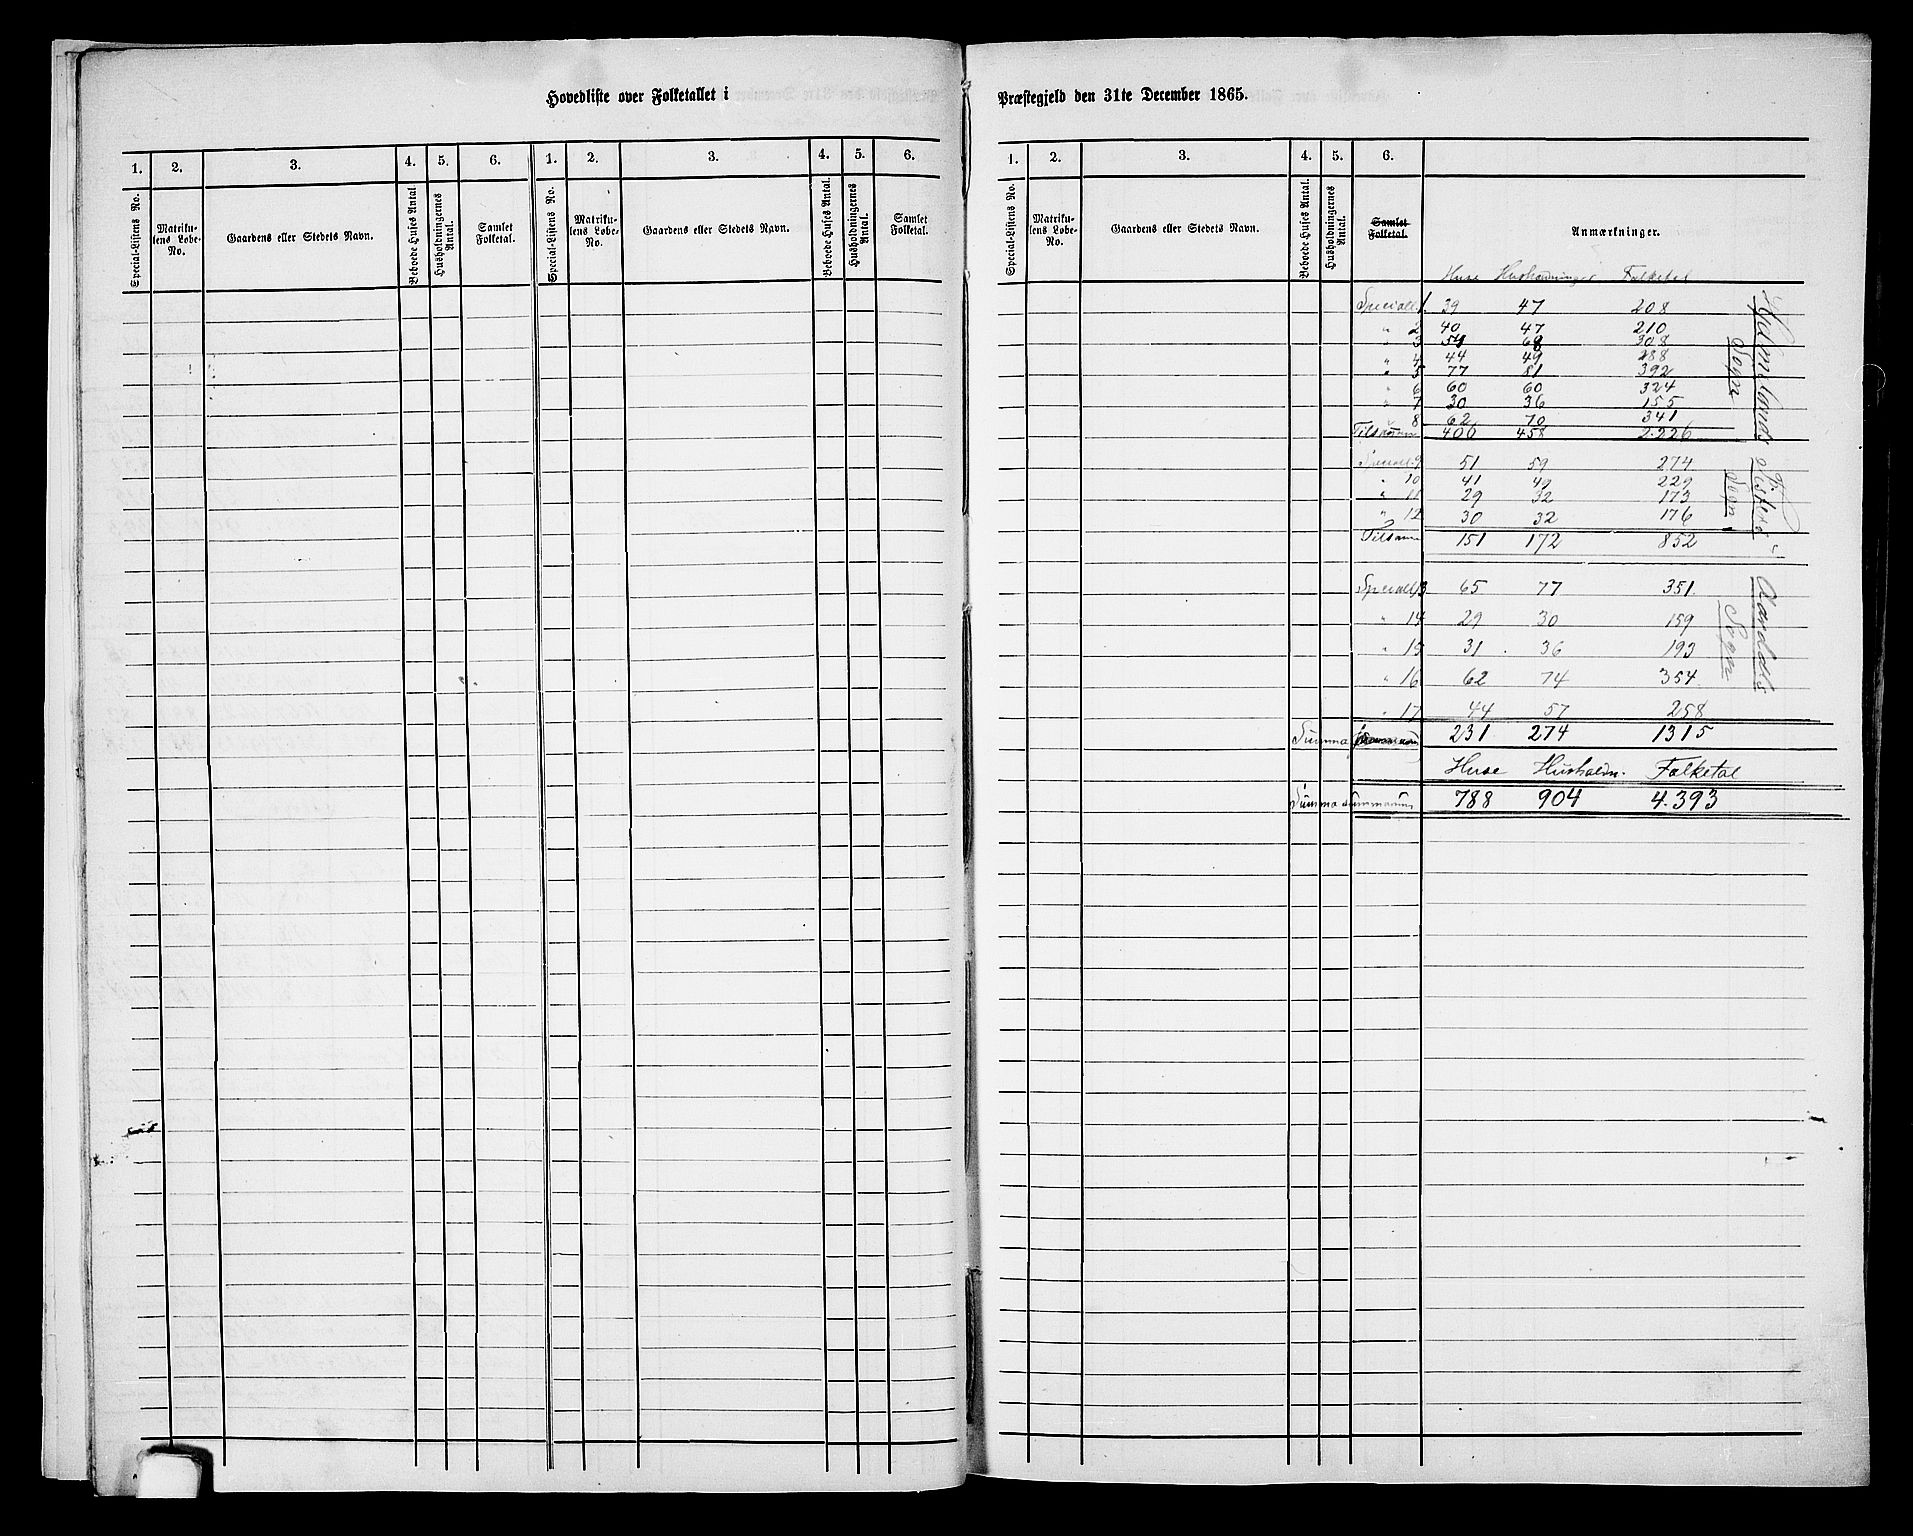 Hovedliste over Folketallet i Præstegjeld den 31te December 1865.
1. 2. 3. 4. 5. 6. 1. 2. 3. 4. 5. 6.
Special-Listens No. Matrikulens Løbe-No. Gaardens eller Stedets Navn. Beboede Huses Antal. Husholdningernes Antal. Samlet Folketal. Special-Listens No. Matrikulens Løbe-No. Gaardens eller Stedets Navn. Beboede Huses Antal. Husholdningernes Antal. Samlet Folketal.
1. 2. 3. 4. 5. 6.
Special-Listens No. Matrikulens Løbe-No. Gaardens eller Stedets Navn. Beboede Huses Antal. Husholdningernes Antal. Samlet Folketal. Anmærkninger.
Huse Husholdninger Folketal
Speciall. 1. 39 47 208
" 2 40 47 210
" 3 54 68 308
" 4 44 49 288
" 5 77 81 392
" 6 60 60 324
" 7 30 36 155
" 8 62 70 341
Tilsammen 406 458 2.226
Hjelmelands Sogn
Speciall. 9 51 59 274
" 10 41 49 229
" 11 29 32 173
" 12 30 32 176
Tilsam 151 172 852
Fisterø Sogn
Speciall. 13 65 77 351
" 14 29 30 159
" 15 31 36 193
" 16 62 74 354
" 17 44 57 258
Summa 231 274 1315
Aardals Sogn
Huse Husholdn. Folketal
Summa summarum 788 904 4.393